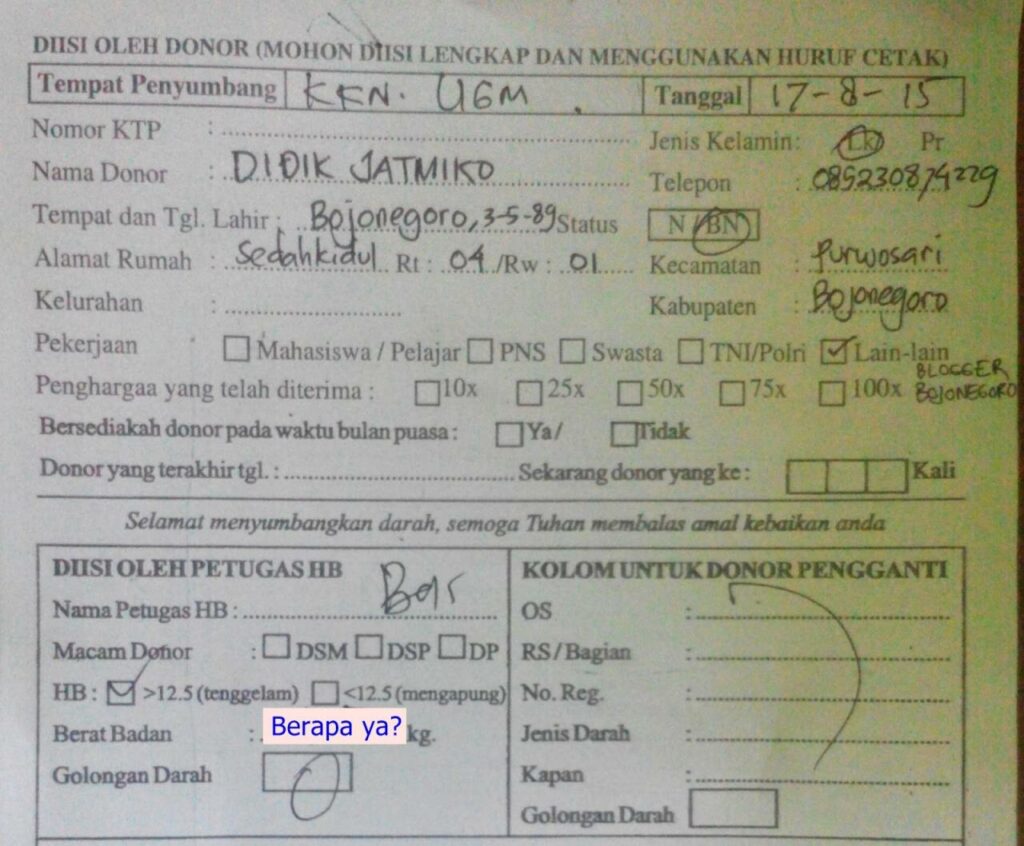 DIISI OLEH DONOR (MOHON DIISI LENGKAP DAN MENGGUNAKAN HURUF CETAK)
Tempat Penyumbang KKN. UGM. Tanggal 17-8-15
Nomor KTP : Jenis Kelamin: Lk Pr
Nama Donor : DIDIK JATMIKO Telepon : 085230874229
Tempat dan Tgl. Lahir : Bojonegoro, 3-5-89 Status N / BN
Alamat Rumah : Sedahkidul Rt : 04 /Rw : 01 Kecamatan : Purwosari
Kelurahan : Kabupaten : Bojonegoro
Pekerjaan : Mahasiswa / Pelajar PNS Swasta TNI/Polri Lain-lain
BLOGGER
Penghargaa yang telah diterima : 10x 25x 50x 75x 100x BOJONEGORO
Bersediakah donor pada waktu bulan puasa : Ya/ Tidak
Donor yang terakhir tgl. : Sekarang donor yang ke : Kali
Selamat menyumbangkan darah, semoga Tuhan membalas amal kebaikan anda
DIISI OLEH PETUGAS HB
Nama Petugas HB :
Macam Donor : DSM DSP DP
HB : >12.5 (tenggelam) <12.5 (mengapung)
Berat Badan : Berapa ya? kg.
Golongan Darah O
KOLOM UNTUK DONOR PENGGANTI
OS :
RS/Bagian :
No. Reg. :
Jenis Darah :
Kapan :
Golongan Darah